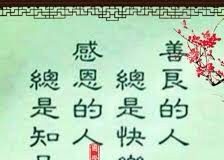 善良的人
總是快樂
感恩的人
總是知足